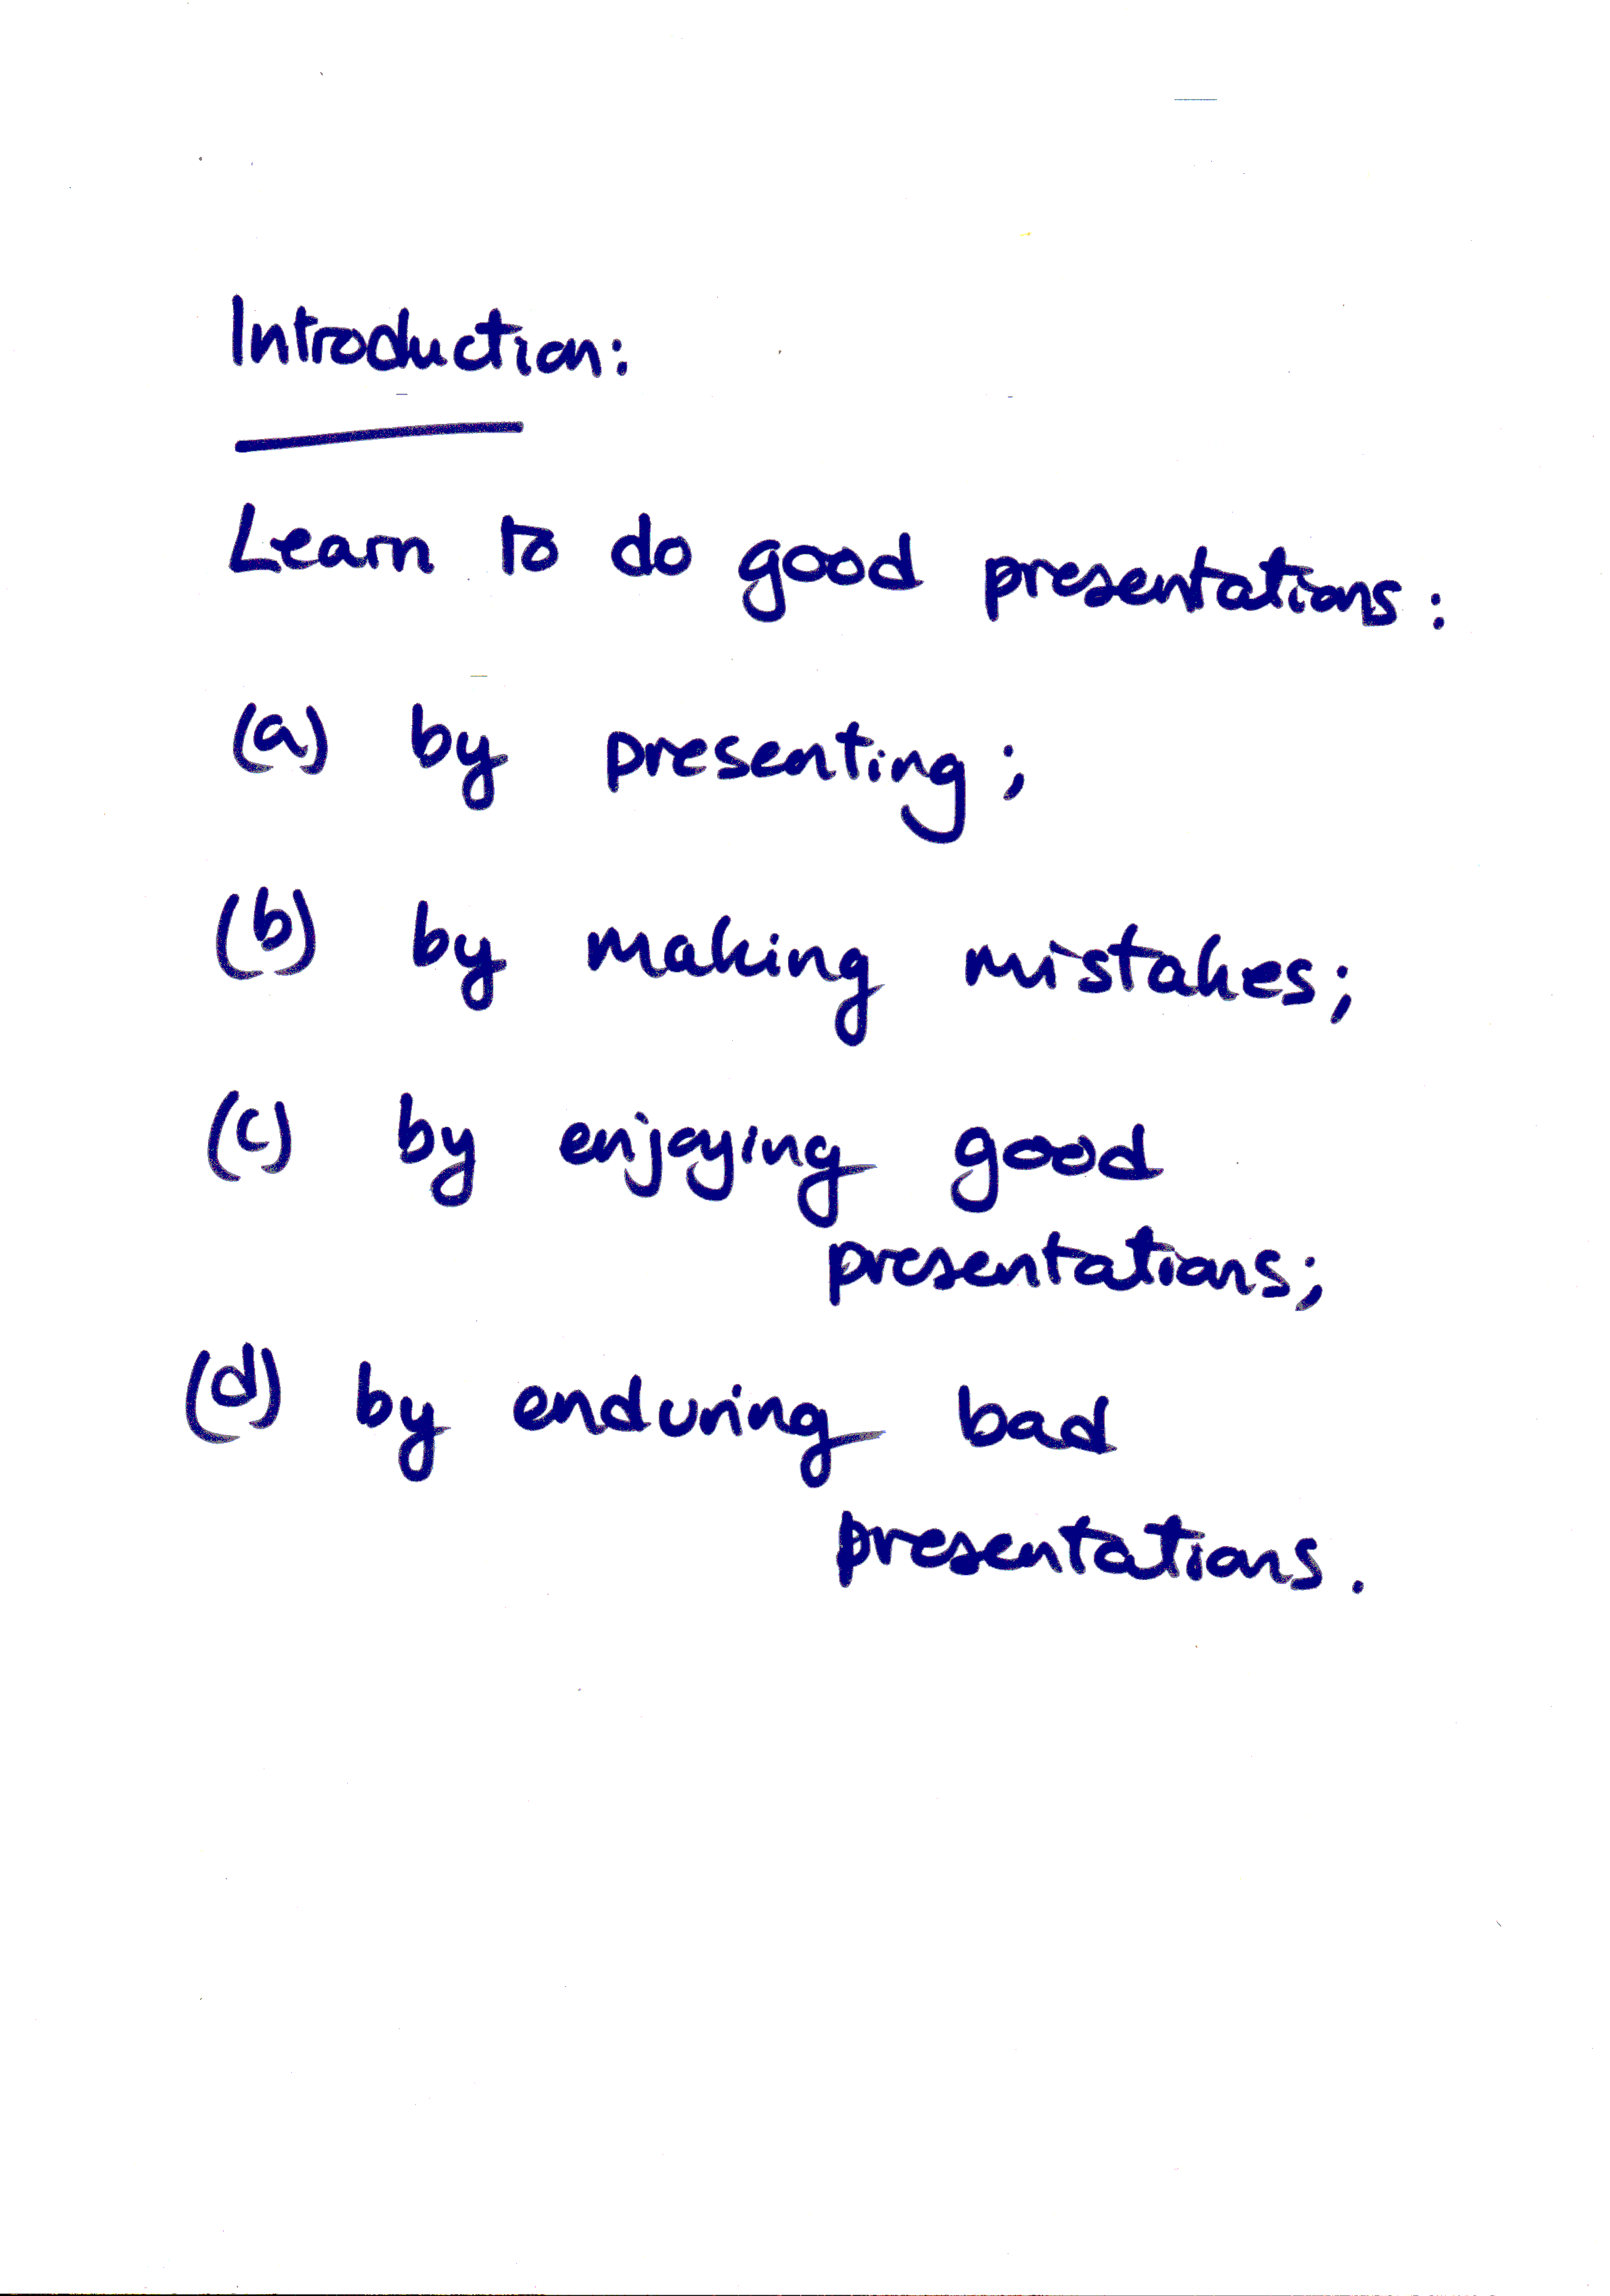 Introduction:
Learn to do good presentations:
(a) by presenting;
(b) by making mistakes;
(c) by enjoying good
presentations;
(d) by enduring bad
presentations.